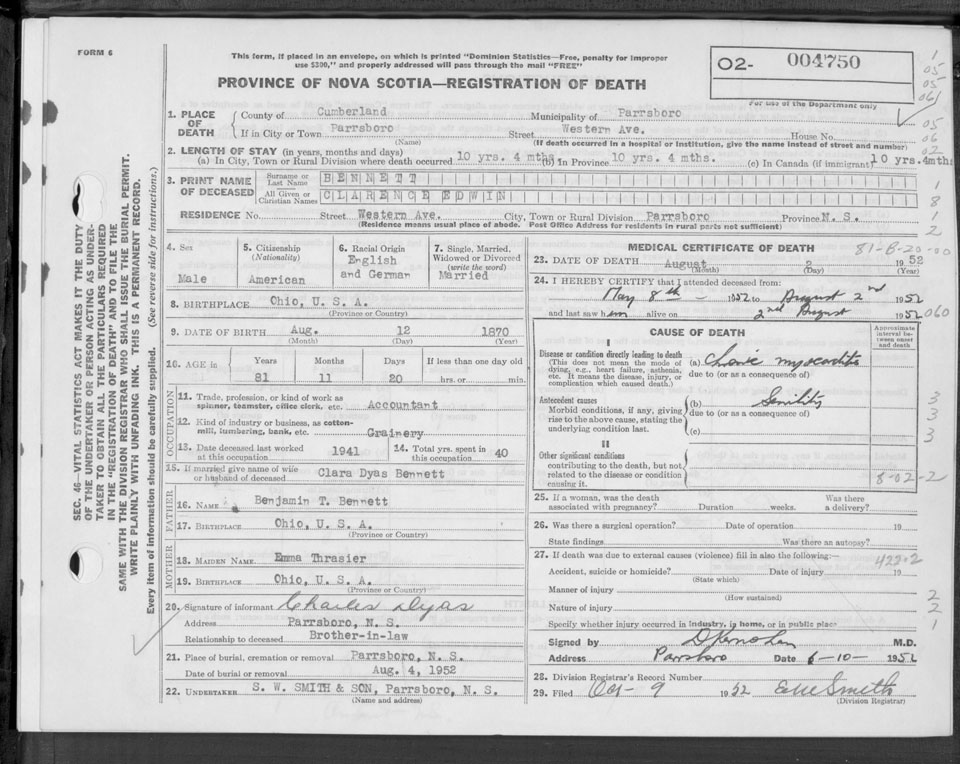 FORM 6
This form, if placed in an envelope, on which is printed "Dominion Statistics—Free, penalty for improper
use $300," and properly addressed will pass through the mail "FREE"
PROVINCE OF NOVA SCOTIA—REGISTRATION OF DEATH
O2- 004750
For use of the Department only
1. PLACE OF DEATH County of Cumberland Municipality of Parrsboro
If in City or Town Parrsboro Street Western Ave. House No.
(Name) (If death occurred in a hospital or institution, give the name instead of street and number)
2. LENGTH OF STAY (in years, months and days)
(a) In City, Town or Rural Division where death occurred 10 yrs. 4 mths. (b) In Province 10 yrs. 4 mths. (c) In Canada (if immigrant) 10 yrs. 4mths
3. PRINT NAME OF DECEASED Surname or Last Name BENNETT
All Given or Christian Names CLARENCE EDWIN
RESIDENCE No. Street Western Ave. City, Town or Rural Division Parrsboro Province N. S.
(Residence means usual place of abode. Post Office Address for residents in rural parts not sufficient)
4. Sex Male
5. Citizenship (Nationality) American
6. Racial Origin English and German
7. Single, Married, Widowed or Divorced (write the word) Married
8. BIRTHPLACE Ohio, U. S. A.
(Province or Country)
9. DATE OF BIRTH Aug. 12 1870
(Month) (Day) (Year)
10. AGE in Years 81 Months 11 Days 20 If less than one day old hrs. or min.
OCCUPATION
11. Trade, profession, or kind of work as spinner, teamster, office clerk, etc. Accountant
12. Kind of industry or business, as cotton-mill, lumbering, bank, etc. Grainery
13. Date deceased last worked at this occupation 1941
14. Total yrs. spent in this occupation 40
15. If married give name of wife or husband of deceased Clara Dyas Bennett
FATHER
16. NAME Benjamin T. Bennett
17. BIRTHPLACE Ohio, U. S. A.
(Province or Country)
MOTHER
18. MAIDEN NAME Emma Thrasier
19. BIRTHPLACE Ohio, U. S. A.
(Province or Country)
20. Signature of informant Charles Dyas
Address Parrsboro, N. S.
Relationship to deceased Brother-in-law
21. Place of burial, cremation or removal Parrsboro, N. S.
Date of burial or removal Aug. 4, 1952
22. UNDERTAKER S. W. SMITH & SON, Parrsboro, N. S.
(Name and address)
MEDICAL CERTIFICATE OF DEATH 81-B-20-00
23. DATE OF DEATH August 2 1952
(Month) (Day) (Year)
24. I HEREBY CERTIFY that I attended deceased from:
May 8th 1952 to August 2nd 1952
and last saw him alive on 2nd August 1952 060
CAUSE OF DEATH
Approximate interval between onset and death
I
Disease or condition directly leading to death
(This does not mean the mode of dying, e.g., heart failure, asthenia, etc. It means the disease, injury, or complication which caused death.)
(a) Chronic myocarditis
due to (or as a consequence of)
Antecedent causes
Morbid conditions, if any, giving rise to the above cause, stating the underlying condition last.
(b) Senility
due to (or as a consequence of)
(c)
II
Other significant conditions
contributing to the death, but not related to the disease or condition causing it.
8-02-2
25. If a woman, was the death associated with pregnancy? Duration weeks. Was there a delivery?
26. Was there a surgical operation? Date of operation 19
State findings Was there an autopsy?
27. If death was due to external causes (violence) fill in also the following:— 422-2
Accident, suicide or homicide? Date of injury 19
(State which)
Manner of injury
(How sustained)
Nature of injury
Specify whether injury occurred in industry, in home, or in public place
Signed by M.D.
Address Parrsboro Date 6-10- 1952
28. Division Registrar's Record Number
29. Filed Oct- 9 1952 Smith
(Division Registrar)
SEC. 46—VITAL STATISTICS ACT MAKES IT THE DUTY
OF THE UNDERTAKER OR PERSON ACTING AS UNDER-
TAKER TO OBTAIN ALL THE PARTICULARS REQUIRED
IN THE "REGISTRATION OF DEATH" AND TO FILE THE
SAME WITH THE DIVISION REGISTRAR WHO SHALL ISSUE THE BURIAL PERMIT.
WRITE PLAINLY WITH UNFADING INK. THIS IS A PERMANENT RECORD.
Every item of information should be carefully supplied. (See reverse side for instructions.)
1
05
05
061
05
06
02
1
8
1
2
3
3
3
2
2
1